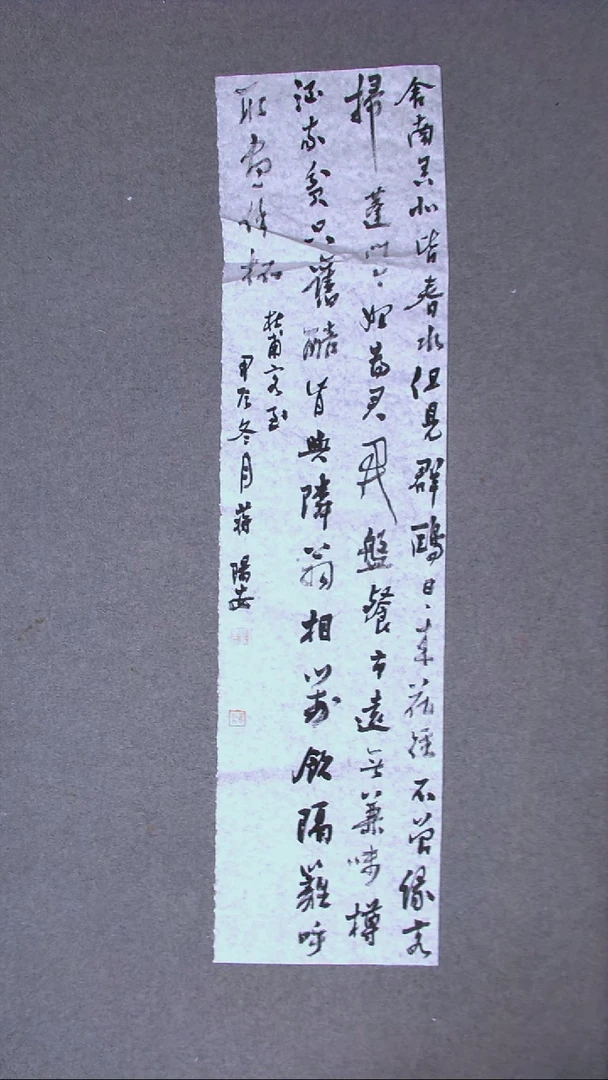 舍南舍北皆春水但見群鷗日日來花徑不曾緣客
掃蓬門今始為君開盤餐市遠無兼味樽
酒家貧只舊醅肯與隣翁相對飲隔籬呼
取盡餘杯
杜甫客至
甲辰冬月蔣陽安